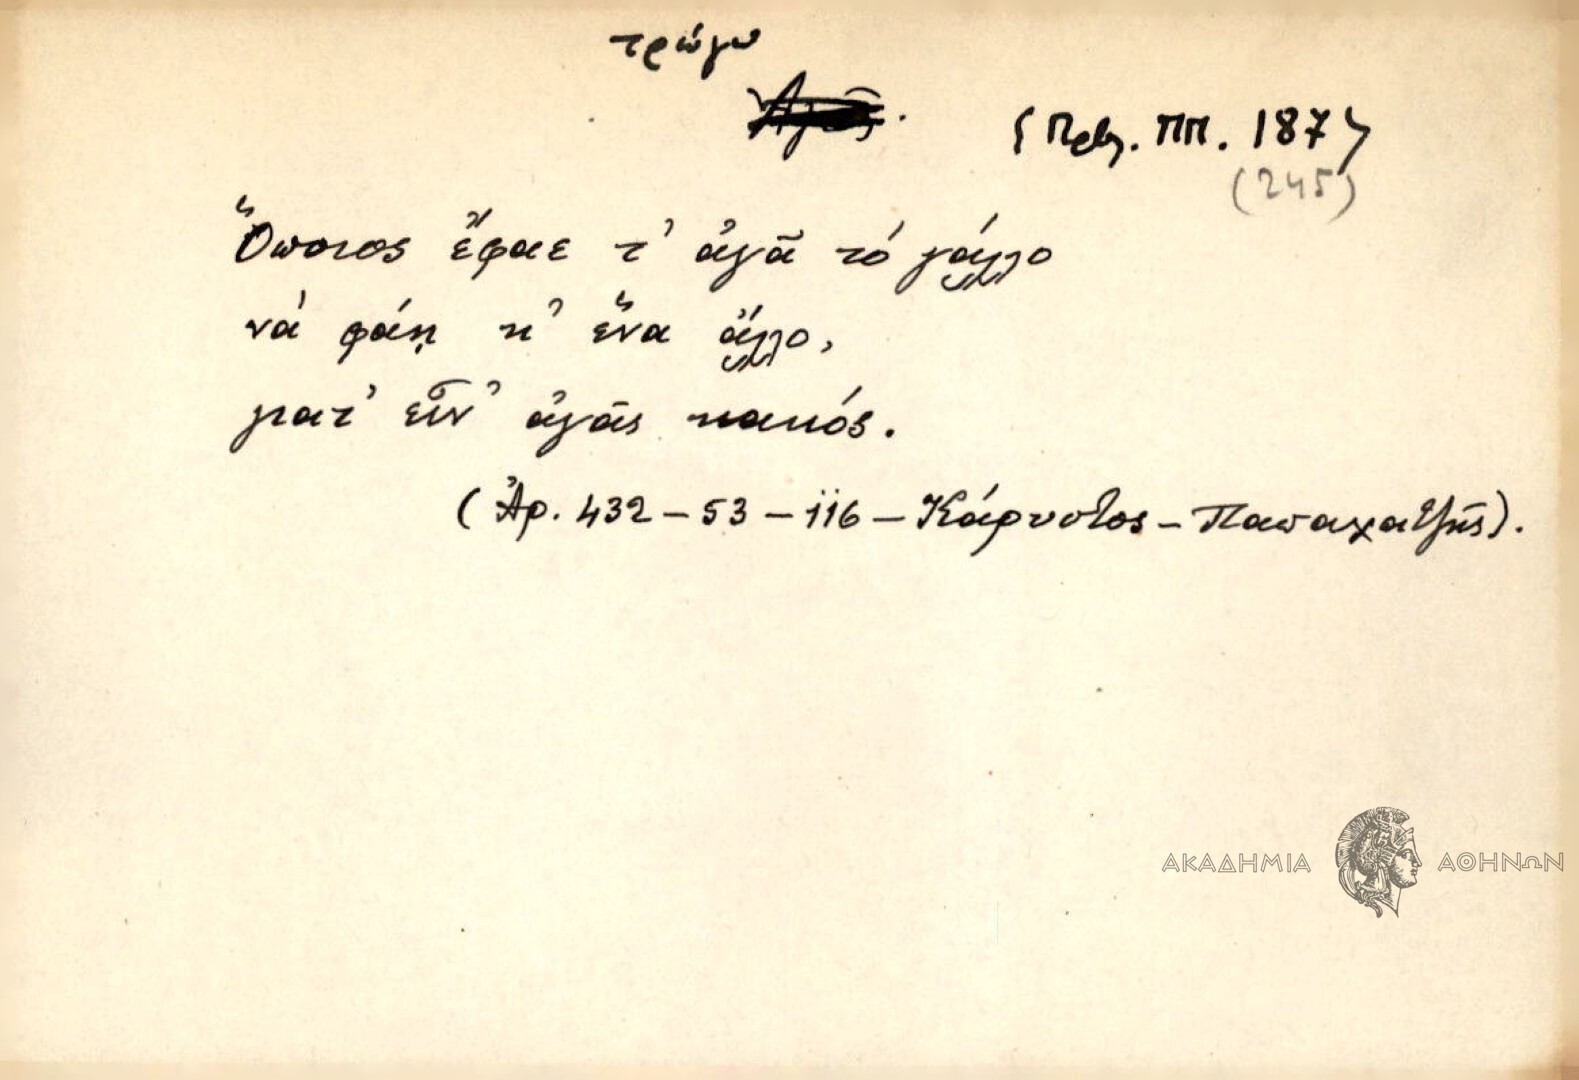 τρώγω
Ἀγᾶς.
{Πρβ. ΠΠ. 187}
(245)
Ὅποιος ἔφαε τ' ἀγᾶ τό γάλλο
νά φάῃ κ' ἕνα ἄλλο,
γιατ' εἶν' ἀγᾶς κακός.
(Ἀρ. 432 – 53 – 116 – Κάρυστος – Παπαχατζῆς).
ΑΚΑΔΗΜΙΑ ΑΘΗΝΩΝ